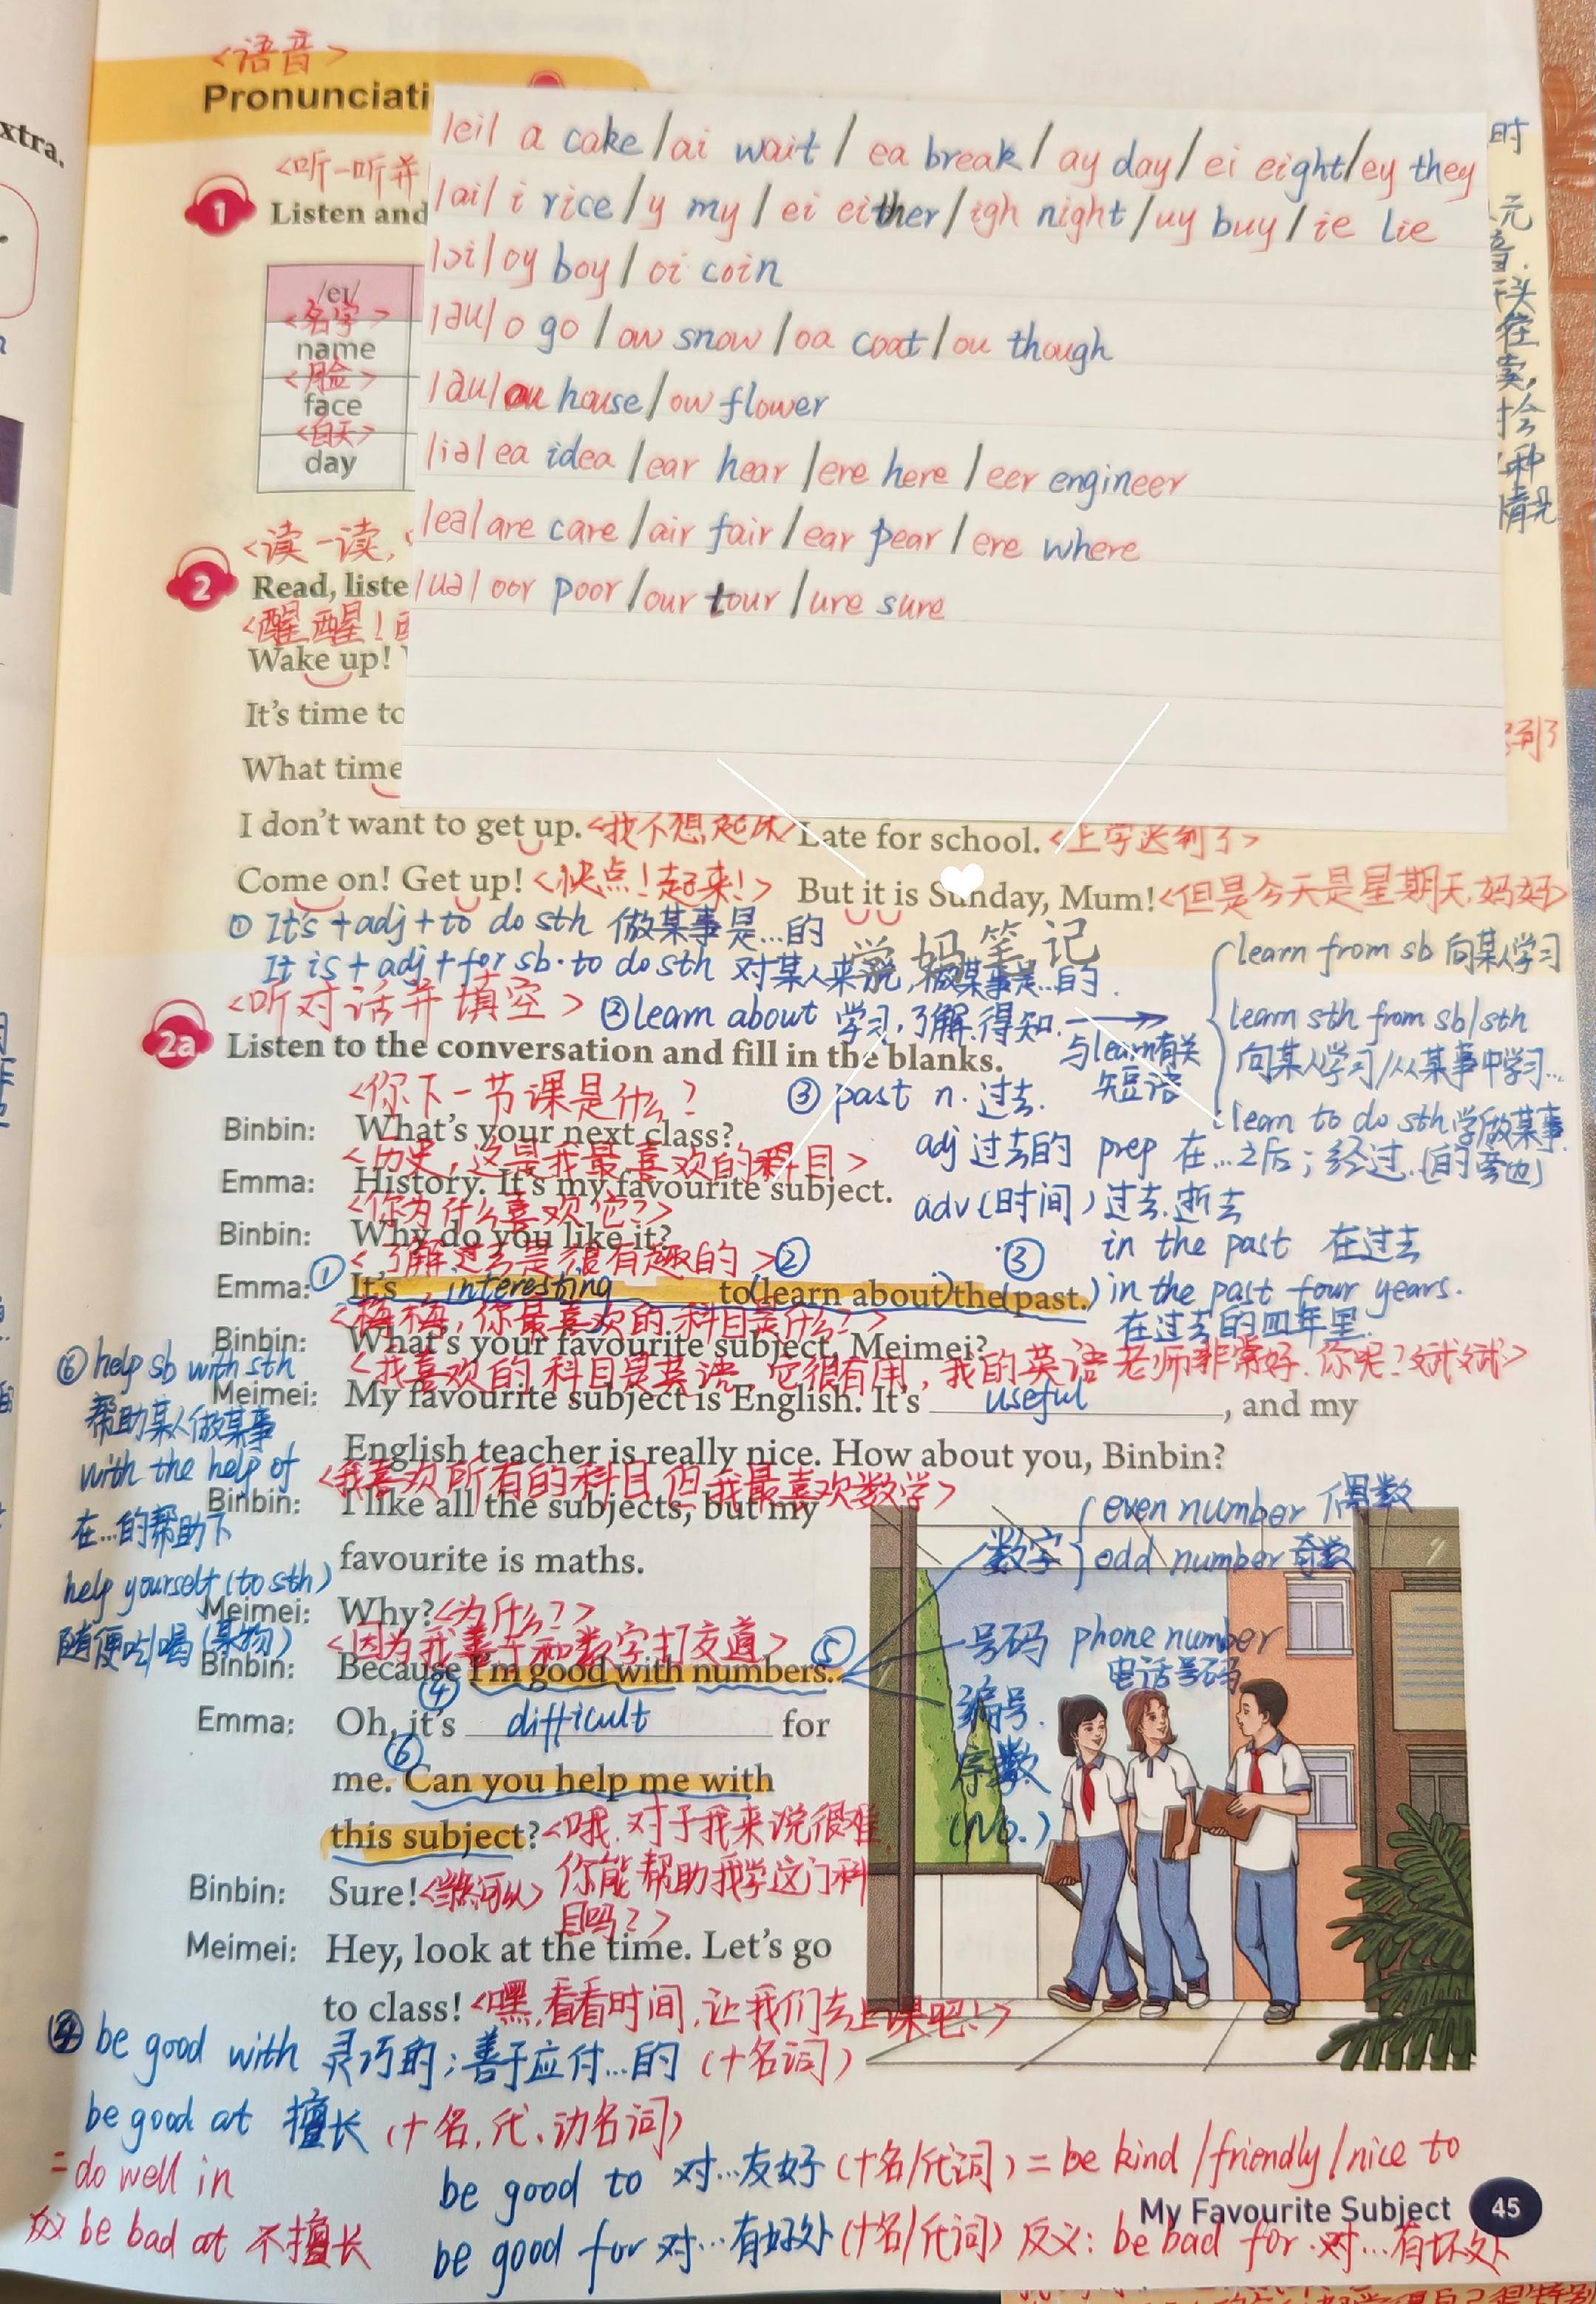 xtra.
<语音>
Pronunciati
<听一听并
1 Listen and
/eɪ/
<名字>
name
<脸>
face
<白天>
day
/ei/ a cake / ai wait / ea break / ay day / ei eight / ey they
/ai/ i rice / y my / ei either / igh night / uy buy / ie lie
/ɔi/ oy boy / oi coin
/əu/ o go / ow snow / oa coat / ou though
/au/ ou house / ow flower
/iə/ ea idea / ear hear / ere here / eer engineer
/eə/ are care / air fair / ear pear / ere where
/uə/ oor poor / our tour / ure sure
时
元
音.
头
往
卖,
会
种
情况
<读一读,
2 Read, liste
<醒醒!
Wake up!
It's time to
What time
到了
I don't want to get up. <我不想起床>
Late for school. <上学迟到了>
Come on! Get up! <快点!起来!>
But it is Sunday, Mum! <但是今天是星期天,妈妈>
① It's + adj + to do sth 做某事是...的
It is + adj + for sb. to do sth 对某人来说,做某事是...的.
学妈笔记
<听对话并填空>
② learn about 学习,了解.得知. → 与learn有关短语
learn from sb 向某人学习
learn sth from sb/sth
向某人学习/从某事中学习...
learn to do sth学做某事.
2a Listen to the conversation and fill in the blanks.
③ past n. 过去.
adj 过去的 prep 在...之后; 经过.[的旁边]
adv (时间) 过去.逝去
in the past 在过去
in the past four years.
在过去的四年里.
<你下一节课是什么?
Binbin: What's your next class?
<历史,这是我最喜欢的科目>
Emma: History. It's my favourite subject.
<你为什么喜欢它?>
Binbin: Why do you like it?
<了解过去是很有趣的>
Emma: ① It's interesting to ② (learn about) the ③ (past.)
<梅梅,你最喜欢的科目是什么?>
Binbin: What's your favourite subject, Meimei?
<我喜欢的科目是英语.它很有用,我的英语老师非常好.你呢?斌斌>
Meimei: My favourite subject is English. It's useful, and my
English teacher is really nice. How about you, Binbin?
<我喜欢所有的科目,但我最喜欢数学>
Binbin: I like all the subjects, but my
favourite is maths.
Meimei: Why? <为什么?>
<因为我善于和数字打交道>
Binbin: Because ④ I'm good with numbers. ⑤
Emma: Oh, it's difficult for
me. ⑥ Can you help me with
this subject? <哦.对于我来说很难
你能帮助我学这门科
目吗?>
Binbin: Sure! <当然可以>
Meimei: Hey, look at the time. Let's go
to class! <嘿,看看时间,让我们去上课吧!>
⑥ help sb with sth
帮助某人做某事
with the help of
在...的帮助下
help yourself (to sth)
随便吃/喝 (某物)
数字
even number 偶数
odd number 奇数
号码 phone number
电话号码
编号.
序数
(No.)
④ be good with 灵巧的;善于应付...的 (+名词)
be good at 擅长 (+名,代、动名词)
= do well in
反义 be bad at 不擅长
be good to 对...友好 (+名/代词) = be kind /friendly/nice to
be good for 对...有好处 (+名/代词) 反义: be bad for 对...有坏处
My Favourite Subject 45